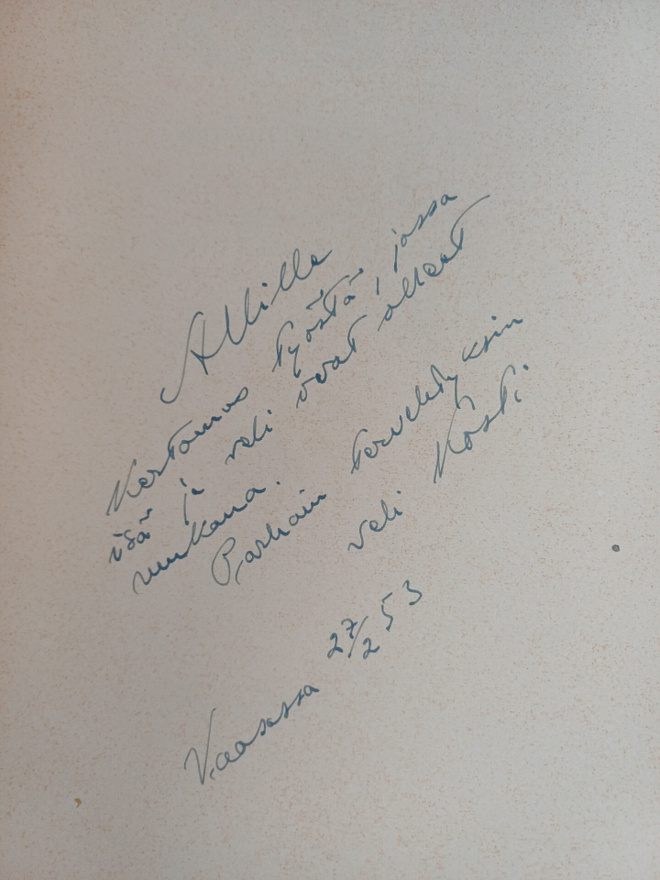 Allille
Kertomus työstä, jossa
isä ja veli ovat olleet
mukana.
Parhain terveht­yksin
veli Kösti
Vaasassa 27/2 53